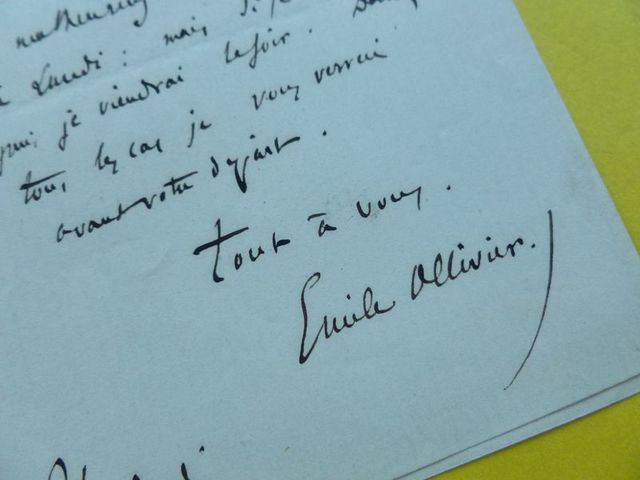 Lundi : mais si je
puis, je viendrai le soir. Dans
tous les cas je vous verrai
avant votre départ.
Tout à vous.
Emile Ollivier.